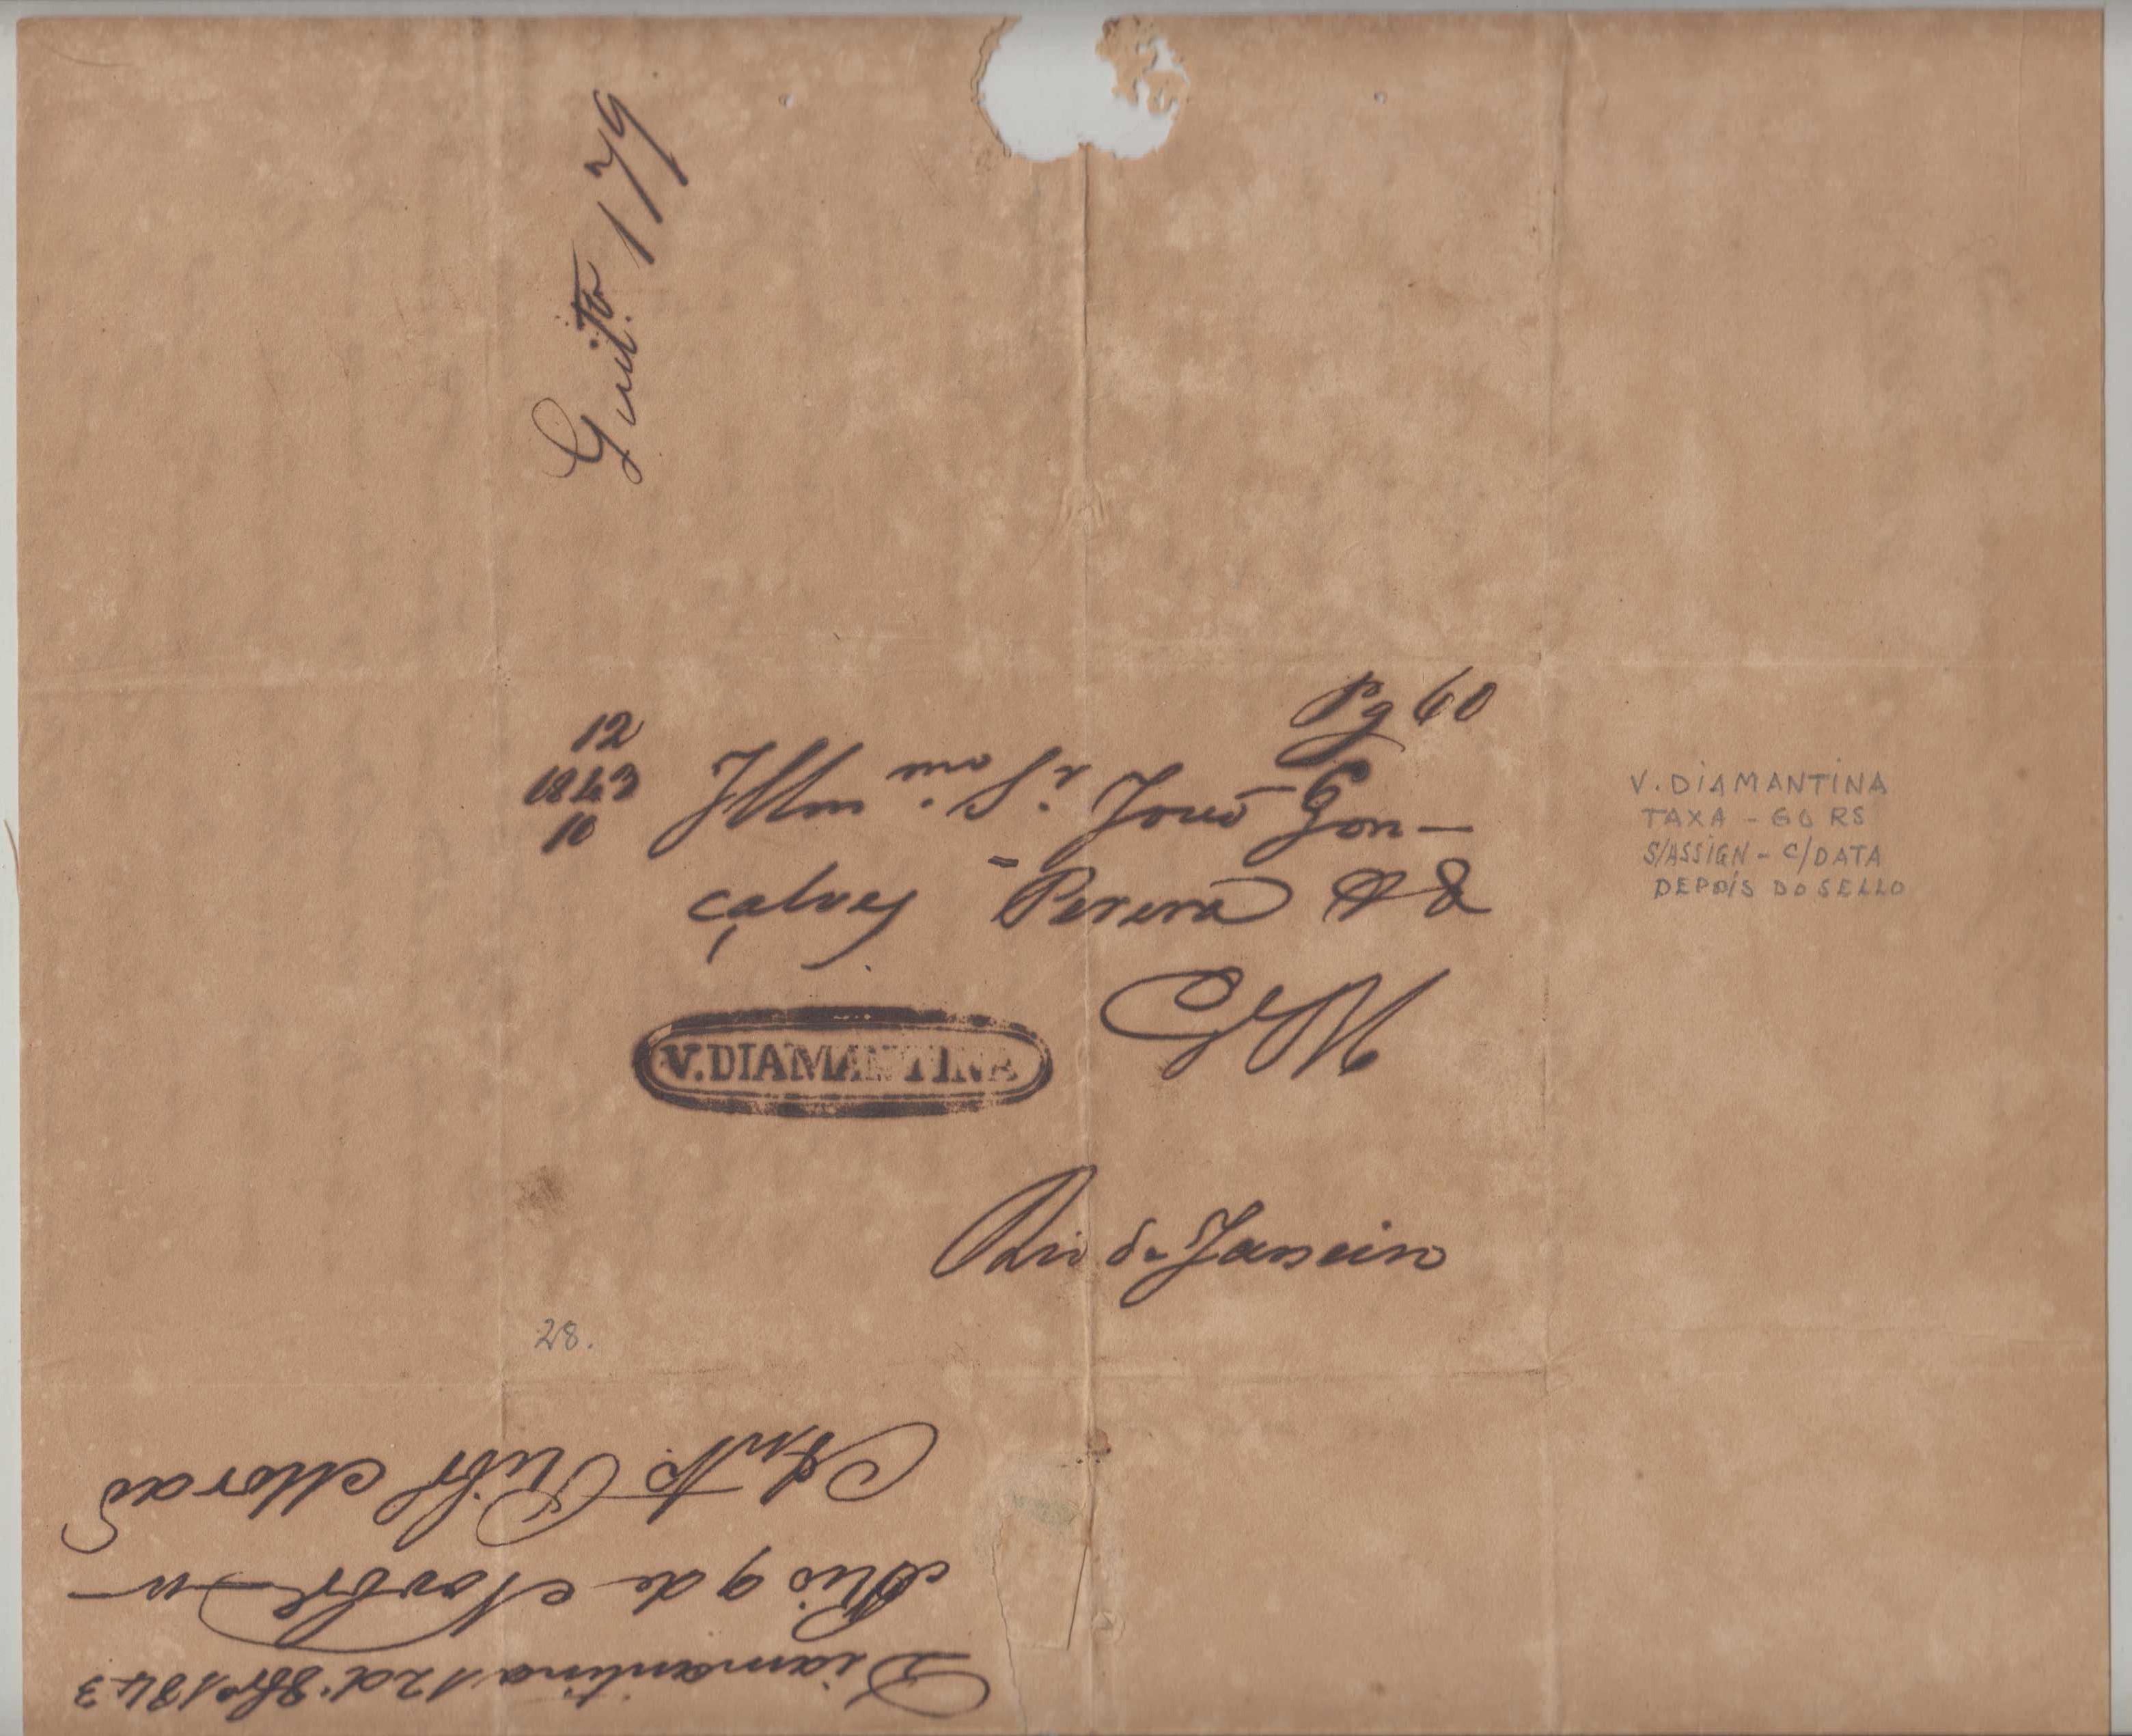 179
Pg 60
12
1843
10
Illm.mo Sr. João Gon-
çalves Pereira
V. DIAMANTINA
G M
Rio de Janeiro
V. DIAMANTINA
TAXA - 60 RS
S/ASSIGN - C/DATA
DEPOIS DO SELLO
28.
Diamantina 12 d' 8br.o 1843
Rio 9 de Novbr.o
Ant.o Ribr.o Moraes